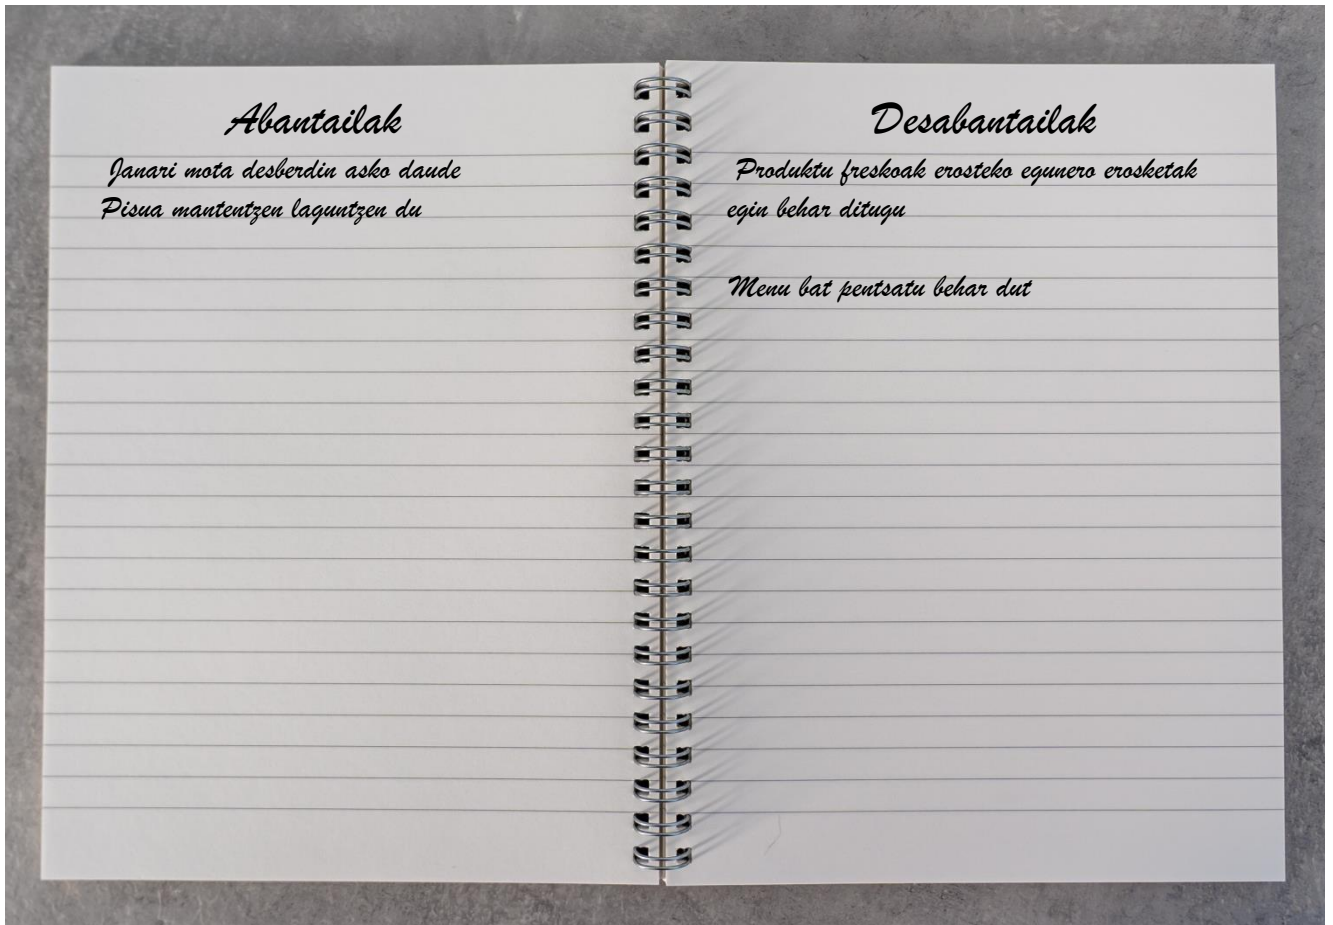 Abantailak
Janari mota desberdin asko daude
Pisua mantentzen laguntzen du
Desabantailak
Produktu freskoak erosteko egunero erosketak
egin behar ditugu
Menu bat pentsatu behar dut